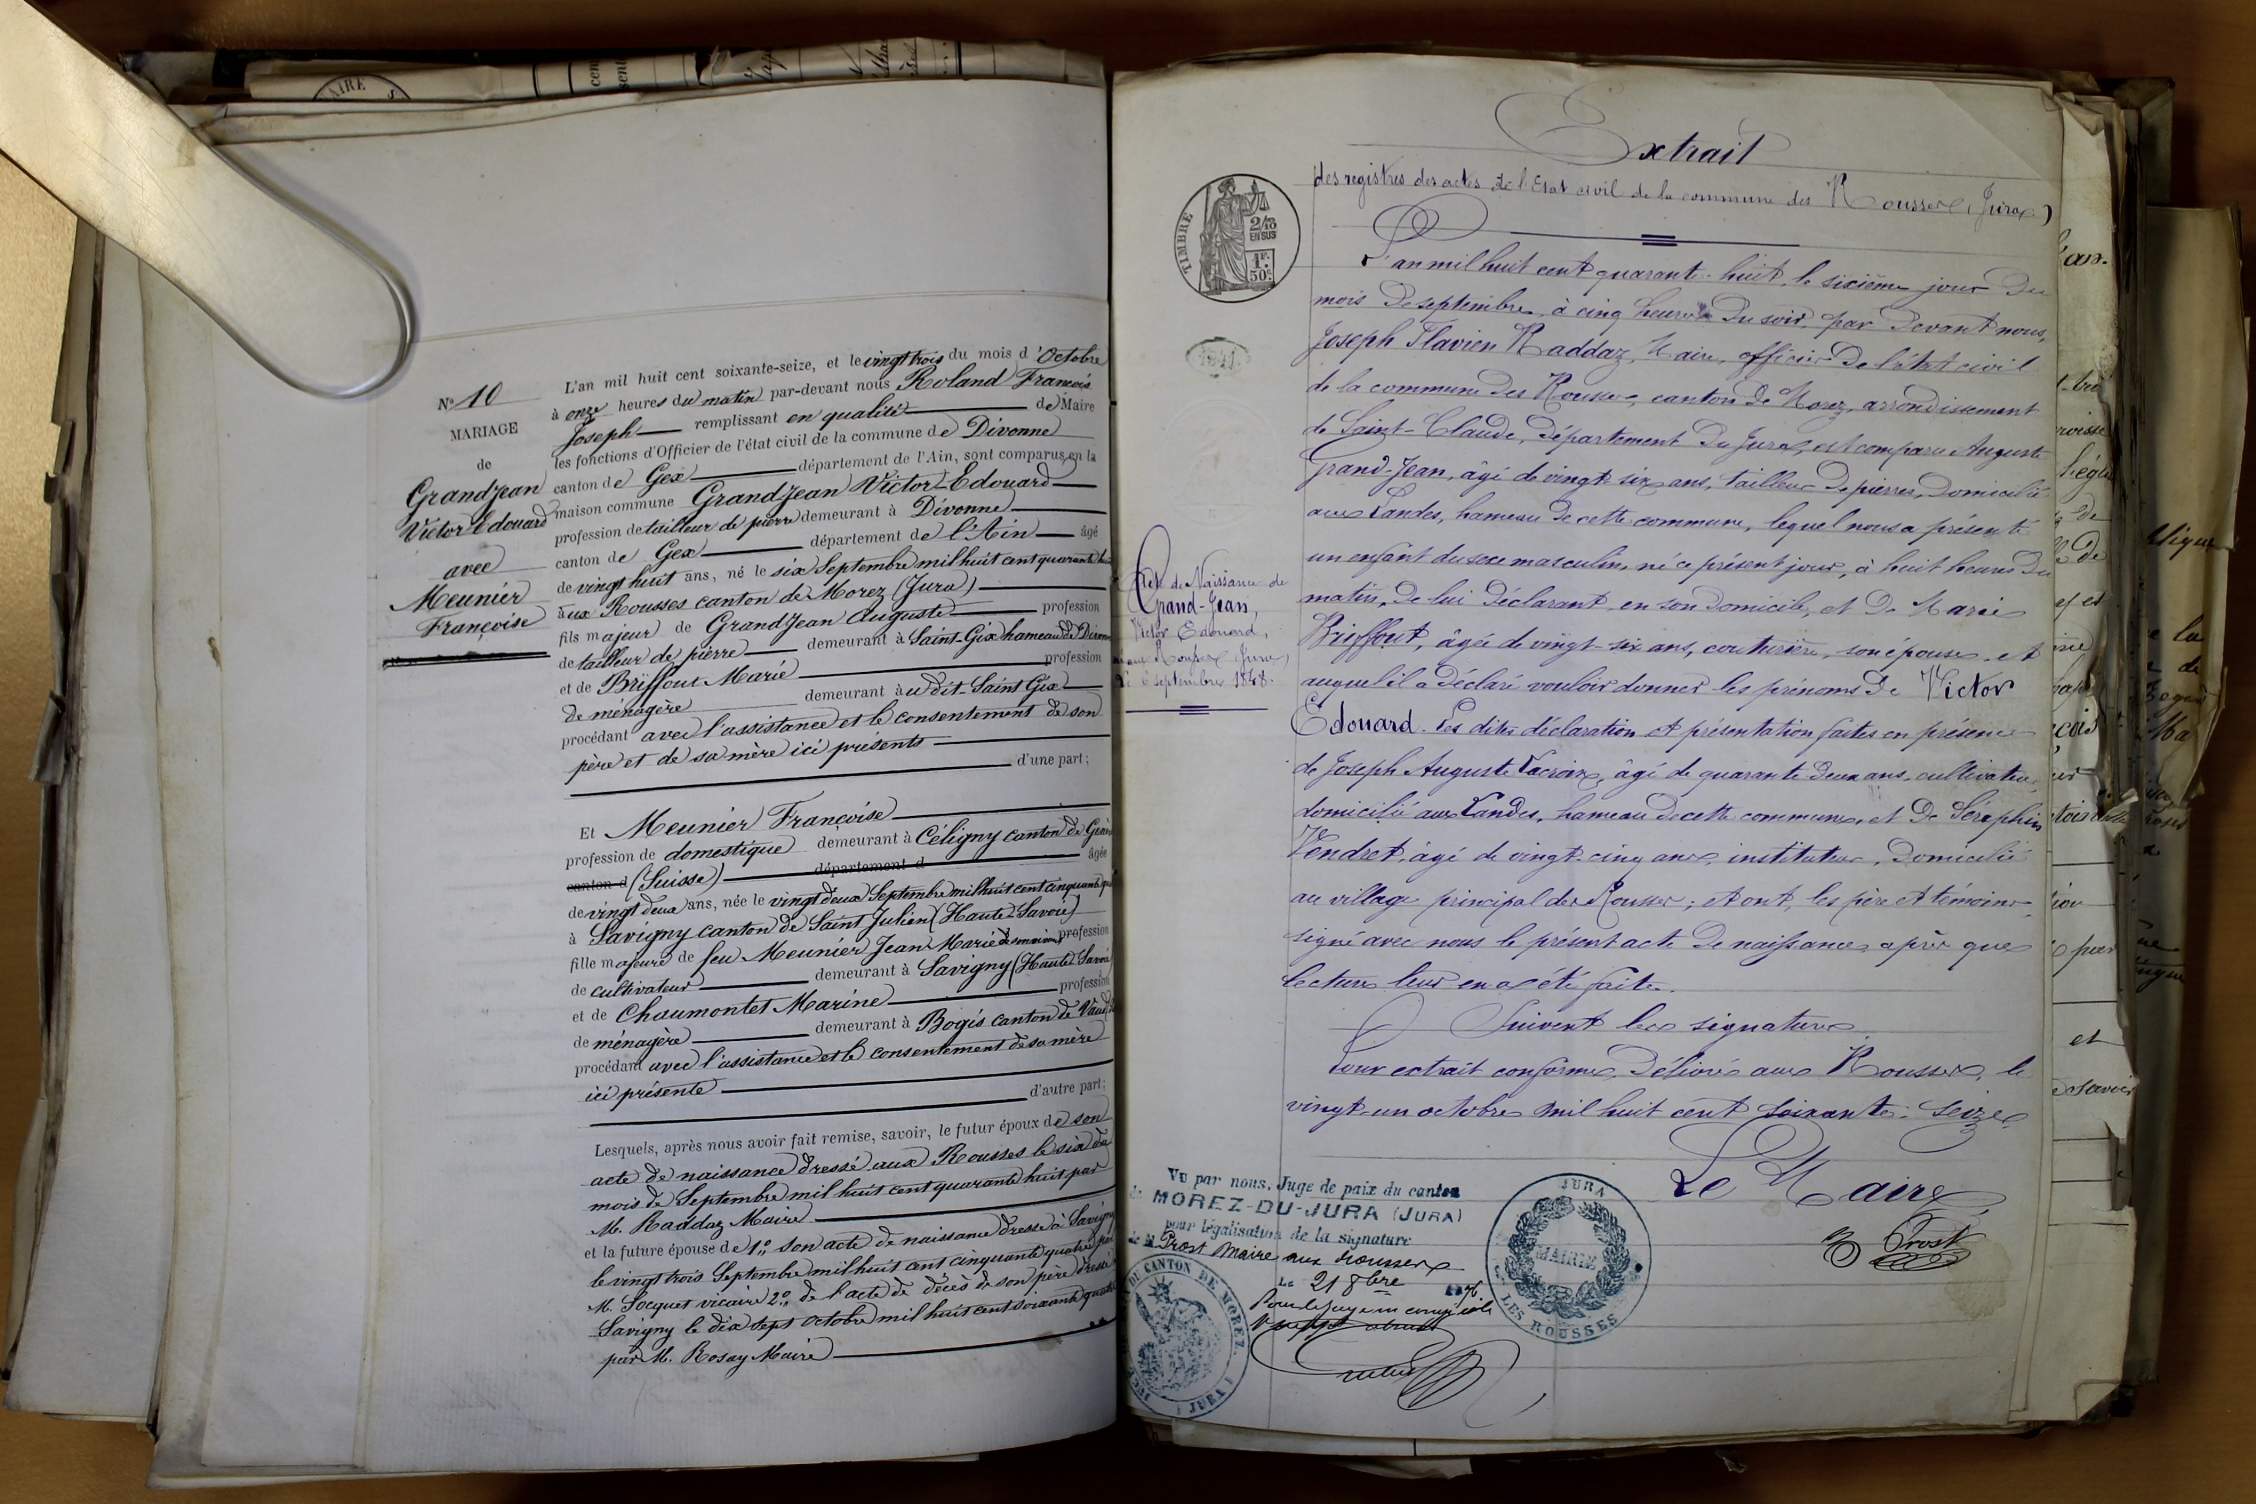 N° 10
MARIAGE
de
Grandjean
Victor Edouard
avec
Meunier
Françoise
L'an mil huit cent soixante-seize, et le vingt trois du mois d'Octobre
à onze heures du matin par-devant nous Roland François
Joseph remplissant en qualité de Maire
les fonctions d'Officier de l'état civil de la commune de Divonne
canton de Gex département de l'Ain, sont comparus en la
maison commune Grandjean Victor-Edouard
profession de tailleur de pierre demeurant à Divonne
canton de Gex département de l'Ain âgé
de vingt huit ans, né le six Septembre mil huit cent quarante huit
aux Rousses canton de Morez (Jura)
fils majeur de Grandjean Auguste profession
de tailleur de pierre demeurant à Saint-Gix hameau de Divonne
et de Briffout Marie profession
de ménagère demeurant au dit Saint Gix
procédant avec l'assistance et le consentement de son
père et de sa mère ici présents
d'une part;
Et Meunier Françoise
profession de domestique demeurant à Céligny canton de Genève
canton d (Suisse) département d âgée
de vingt deux ans, née le vingt deux Septembre mil huit cent cinquante
à Savigny canton de Saint Julien (Haute-Savoie)
fille majeure de feu Meunier Jean Marie profession
de cultivateur demeurant à Savigny (Haute Savoie
et de Chaumontet Marine profession
de ménagère demeurant à Bogis canton de Vaud
procédant avec l'assistance et le consentement de sa mère
ici présente
d'autre part;
Lesquels, après nous avoir fait remise, savoir, le futur époux de son
acte de naissance dressé aux Rousses le six du
mois de Septembre mil huit cent quarante huit par
M. Raddaz Maire
et la future épouse de 1° son acte de naissance dressé à Savigny
le vingt trois Septembre mil huit cent cinquante quatre par
M. Socquet vicaire 2° de l'acte de décès de son père dressé
Savigny le dix sept octobre mil huit cent soixante quatre
par M. Rosay Maire
Extrait
des registres des actes de l'Etat civil de la commune des Rousses (Jura)
TIMBRE
2/10
EN SUS
1F.
50c.
L'an mil huit cent quarante-huit, le sixième jour du
mois de septembre, à cinq heures du soir, par devant nous,
Joseph Flavien Raddaz, Maire, officier de l'état civil
de la commune des Rousses, canton de Morez, arrondissement
de Saint-Claude, département du Jura, est comparu Auguste
Grand-Jean, âgé de vingt six ans, tailleur de pierres, domicilié
aux Landes, hameau de cette commune, lequel nous a présenté
un enfant du sexe masculin, né ce présent jour, à huit heures du
matin, de lui déclarant en son domicile, et de Marie
Briffout, âgée de vingt-six ans, couturière, son épouse, et
auquel il a déclaré vouloir donner les prénoms de Victor
Edouard. Les dites déclaration et présentation faites en présence
de Joseph Auguste Lacroix, âgé de quarante deux ans, cultivateur,
domicilié aux Landes, hameau de cette commune, et de Séraphin
Vendret, âgé de vingt-cinq ans, instituteur, domicilié
au village principal des Rousses; et ont, les père et témoins
signé avec nous le présent acte de naissance, après que
lecture leur en a été faite.
Suivent les signatures.
Pour extrait conforme, délivré aux Rousses, le
vingt-un octobre mil huit cent soixante-seize.
Le Maire
Prost
Acte de Naissance de
Grand-Jean,
Victor Edouard,
aux Rousses (Jura)
6 septembre 1848.
Vu par nous, Juge de paix du canton
de MOREZ-DU-JURA (JURA)
pour légalisation de la signature
de M. Prost Maire aux Rousses
Le 21 8bre 1876
JURA
MAIRIE
LES ROUSSES
DU CANTON DE MOREZ
(JURA)